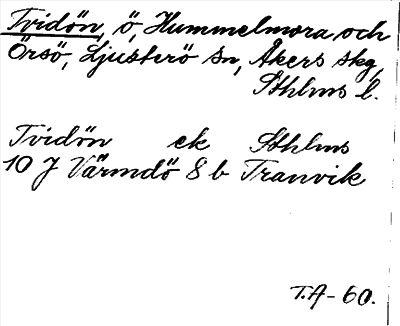 Tvidön, ö, Hummelmora och
Örsö, Ljusterö sn, Åkers skg,
Sthlms l.
Tvidön ek Sthlms
10 J Värmdö 8 b Tranvik
T.A-60.